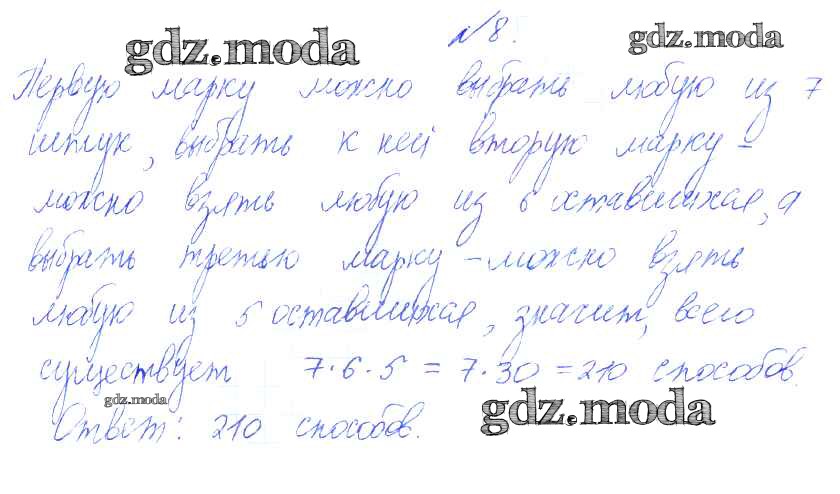 gdz.moda
№8.
gdz.moda
Первую марку можно выбрать любую из 7
штук, выбрать к ней вторую марку -
можно взять любую из 6 оставшихся, а
выбрать третью марку - можно взять
любую из 5 оставшихся, значит, всего
существует 7·6·5 = 7·30 = 210 способов.
gdz.moda
Ответ: 210 способов.
gdz.moda